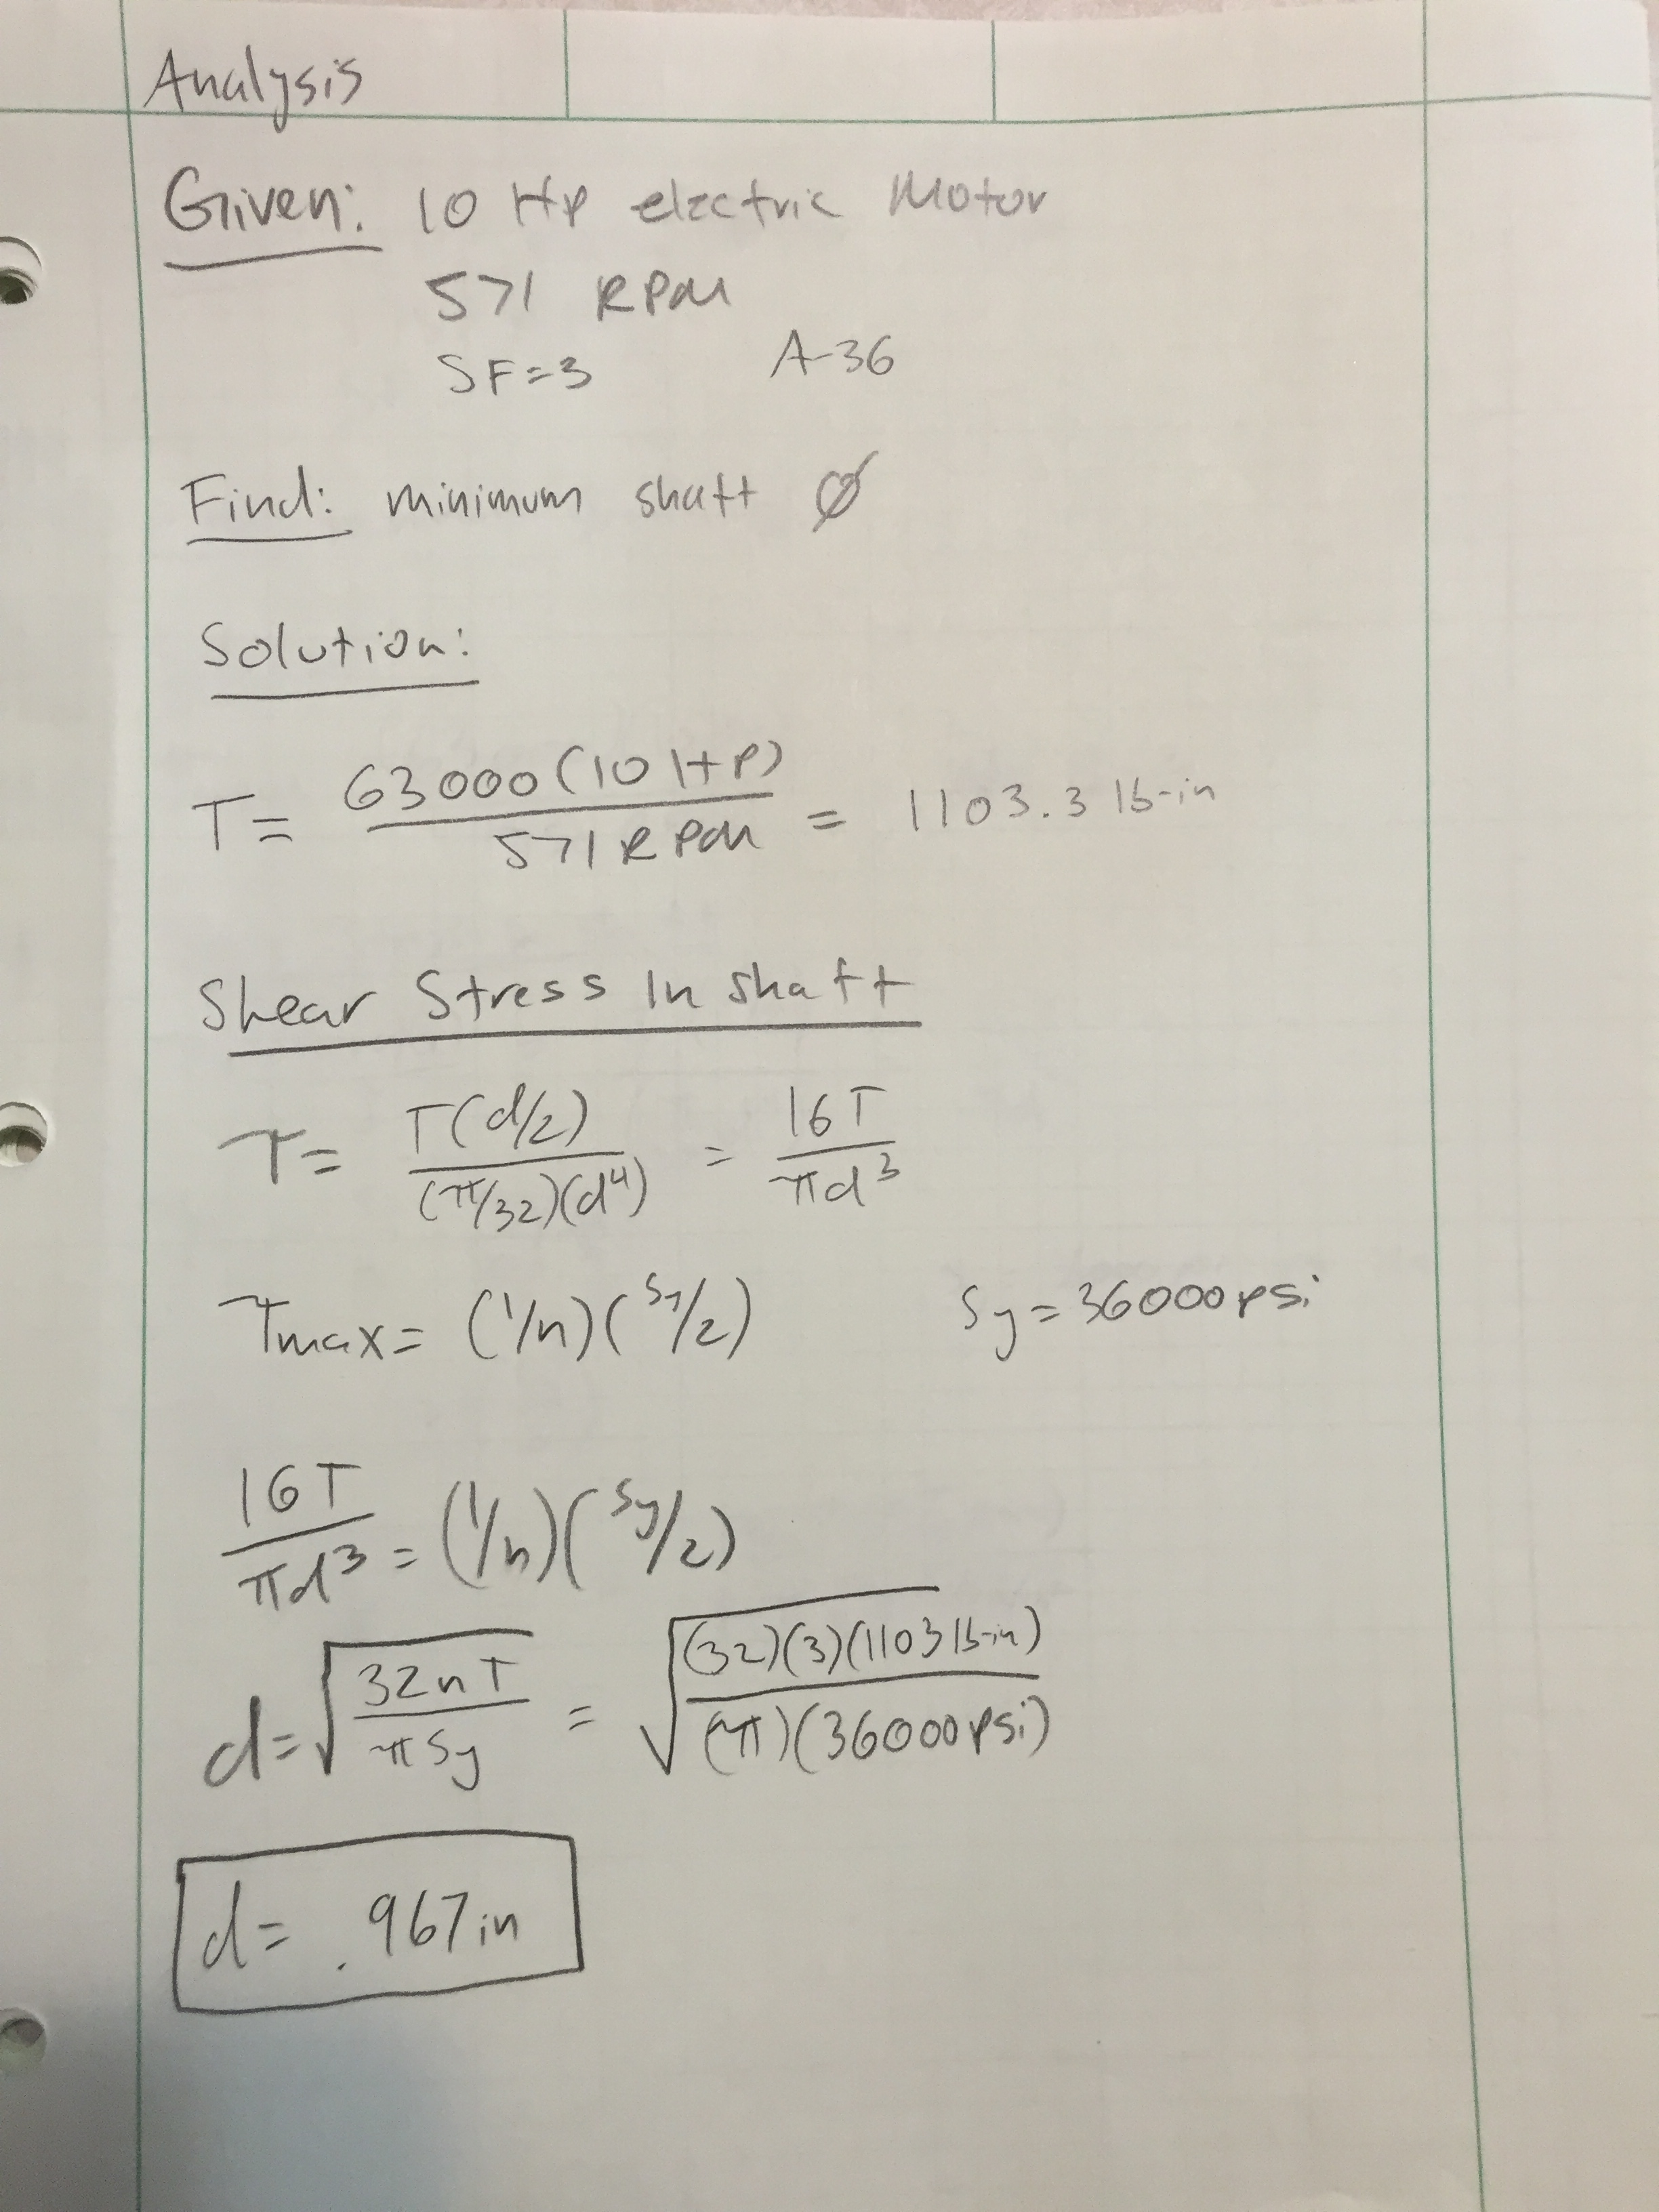 Analysis
Given: 10 Hp electric Motor
571 RPM
SF=3 A-36
Find: minimum shaft ∅
Solution:
T= 63000(10 HP) / 571 RPM = 1103.3 lb-in
Shear Stress In shaft
τ= T(d/2) / (π/32)(d⁴) = 16T / πd³
τmax= (1/n)(Sy/2) Sy=36000psi
16T / πd³ = (1/n)(Sy/2)
d= √(32nT / πSy) = √((32)(3)(1103 lb-in) / (π)(36000psi))
d= .967in